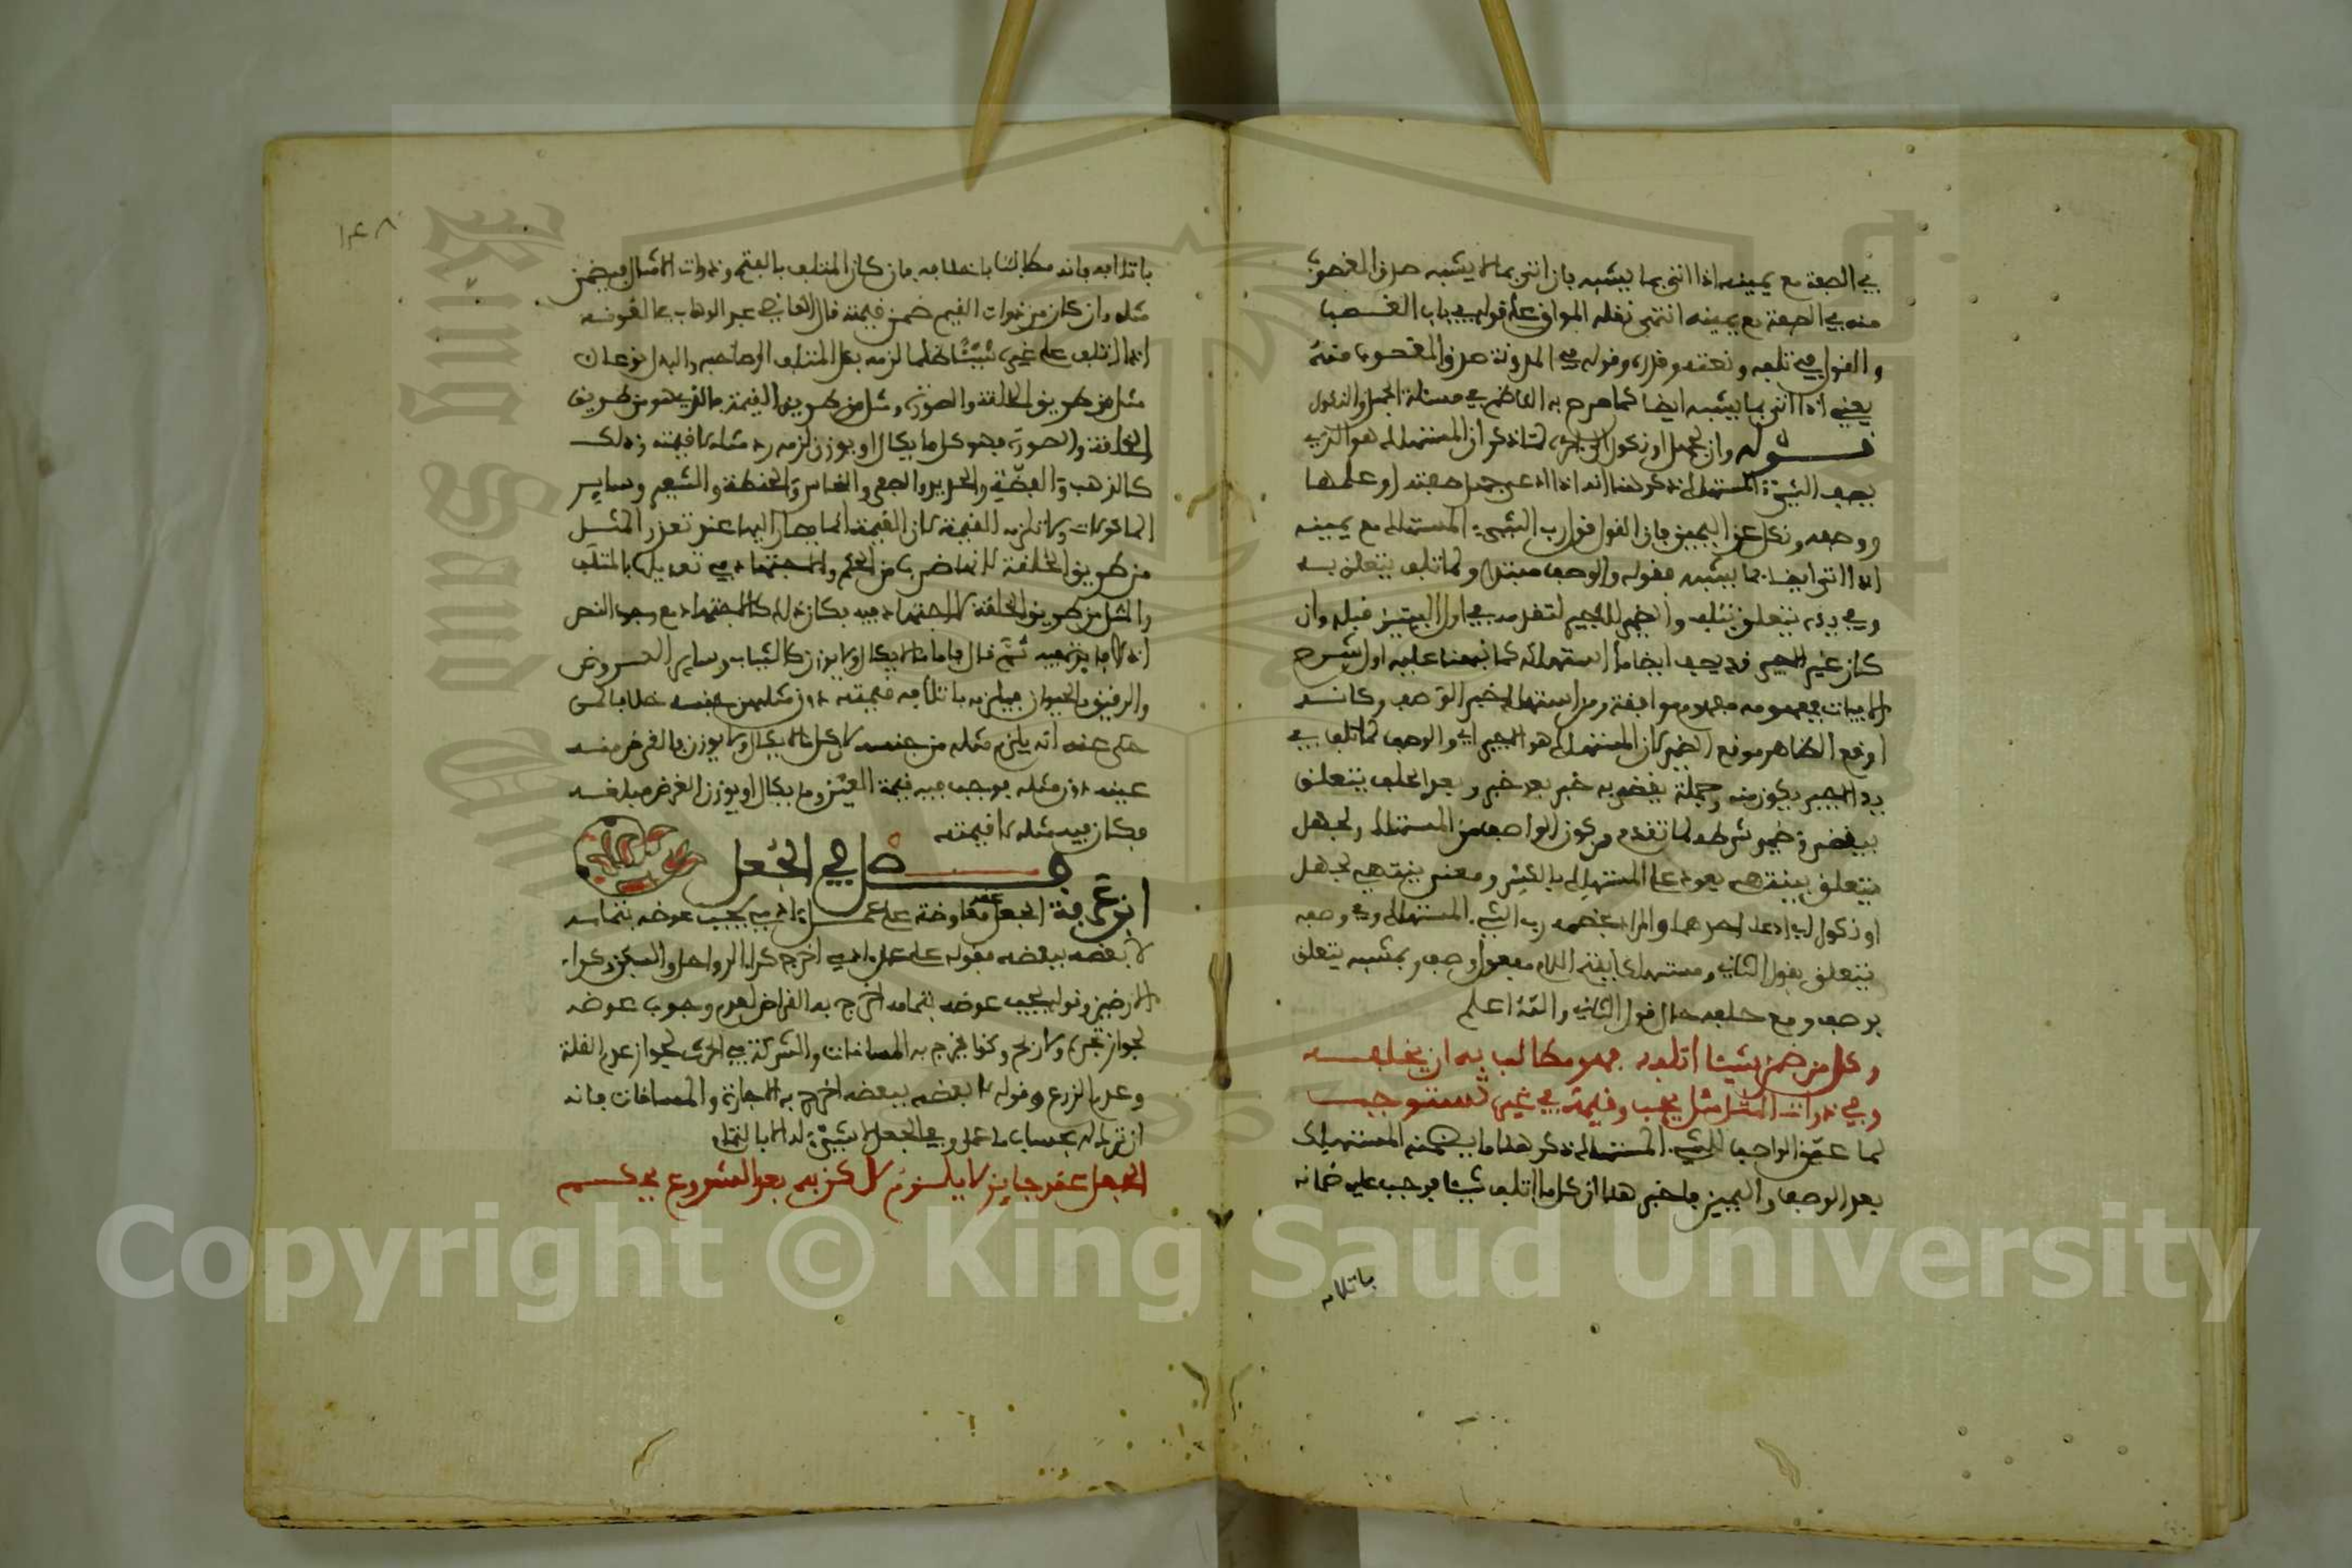 في الصفة مع يمينه اذا اتى بما يشبه بان اتى بما لا يشبه صدق المغصوب
منه في الصفة مع يمينه انتهى نقله المواق على قوله في باب الغصب
والقول في تلفه ونعته وقدره وقوله في المدونة صدق المغصوب منه
يعني اذا اتى بما يشبه ايضا كما صرح به الناظم في مسئلة الجهل والنكول
قوله وان بجهل او نكول لما ذكر ان المستهلك هو الذي
يصف الشيء المستهلك ذكر هنا انه اذا ادعى جهل صفته او علمها
ووصفه ونكل عن اليمين فان القول قول رب الشيء المستهلك مع يمينه
اذا اتى ايضا بما يشبه فقوله والوصف مبتدا ولما تلف يتعلق به
وفي يده يتعلق بتلف والضمير للاجير لتقدمه في اول البيتين قبله وان
كان غير الاجير قد يصف ايضا ما استهلكه كما نبهنا عليه اول شرح
الابيات فمفهومه مفهوم موافقة ومن استهلك خبر الوصف وكانه
اوقع الظاهر موقع الضمير لان المستهلك هو الاجير اي والوصف لما تلف في
يد الاجير يكون منه وجملة يقضى به خبر بعد خبر وبعد الحلف يتعلق
بيقضى وضمير شرطه لما تقدم من كون الواصف من المستهلك ولجهل
يتعلق بينتهي يعود على المستهلك بالكسر ومعنى ينتهي لجهل
او نكول اي ادعاء احدهما والمراد بخصمه رب الشيء المستهلك وفي وصفه
يتعلق بقول الثاني ومستهلك بفتح اللام مفعول وصف وبمشبه يتعلق
بوصف ومع حلفه حال قول الثاني والله اعلم
وكل من ضمن شيئا اتلفه فهو مطالب به ان يخلفه
وفي ذوات المثل مثل يجب وقيمة في غيره تستوجب
لما عين الواصف للشيء المستهلك ذكر هنا ما يضمنه المستهلك
بعد الوصف واليمين فاخبر هنا ان كل ما اتلف شيئا فوجب عليه ضمانه
باتلافه
١٤٨
باتلافه فانه مطالب باخلافه فان كان المتلف بالفتح من ذوات الامثال فيضمن
مثله وان كان من ذوات القيم ضمن قيمته قال القاضي عبد الوهاب في المعونة
اذا اتلف على غيره شيئا ظلما لزمه بدل المتلف الى صاحبه والبدل نوعان
مثل من طريق الخلقة والصورة ومثل من طريق القيمة فالذي هو من طريق
الخلقة والصورة فهو كل ما يكال او يوزن لزمه رد مثله لا قيمته وذلك
كالذهب والفضة والحديد والصفر والنحاس والحنطة والشعير وساير
الماكولات ولا تلزمه القيمة لان القيمة انما يصار اليها عند تعذر المثل
من طريق الخلقة لانها ضرب من الحكم والاجتهاد في تعديلها بالمتلف
والمثل من طريق الخلقة لا اجتهاد فيه فكان ذلك كالاجتهاد مع وجود النص
ثم قال فاما ما لا يكال ولا يوزن كالثياب وساير العروض
والرقيق والحيوان فيلزمه باتلافه قيمته دون مثله من جنسه خلافا لمن
حكى عنه انه يلزم مثله من جنسه لان كل ما لا يكال ولا يوزن فالغرض منه
عينه دون مثله فوجب فيه قيمة العين وما يكال او يوزن الغرض مبلغه
فكان فيه مثله لا قيمته
فصل في الجعل
ابن عرفة الجعل عقد معاوضة على عمل ادمي يجب عوضه بتمامه
لا بعضه ببعضه فقوله على عمل ادمي اخرج كراء الرواحل والسفن وكراء
الارضين وقوله يجب عوضه بتمامه اخرج به القراض لعدم وجوب عوضه
لجواز تجره ولا ربح وكذا يخرج به المساقات والشركة في الحرث لجواز عدم الغلة
وعدم الزرع وقوله لا بعضه ببعضه اخرج به الاجارة والمساقات فانه
ان ترك له بحساب ما عمل وفي الجعل لا شيء له الا بالتمام
الجعل عقد جايز لا يلزم لكن به بعد الشروع يحكم